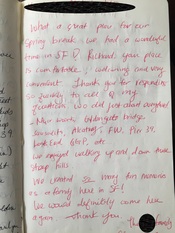 What a great place for our
Spring break. We had a wonderful
time in SF! Richard your place
is comfortable, and very
convenient. Thank you for responding
so quickly to all of my
questions. We did just about everything
worth
Alcatraz, FW, Pier 39,
GGP, etc.
We enjoyed walking up and down those
steep hills
We created many fun memories
as a family here in SF!
We would definitely come here
again. Thank you
Family